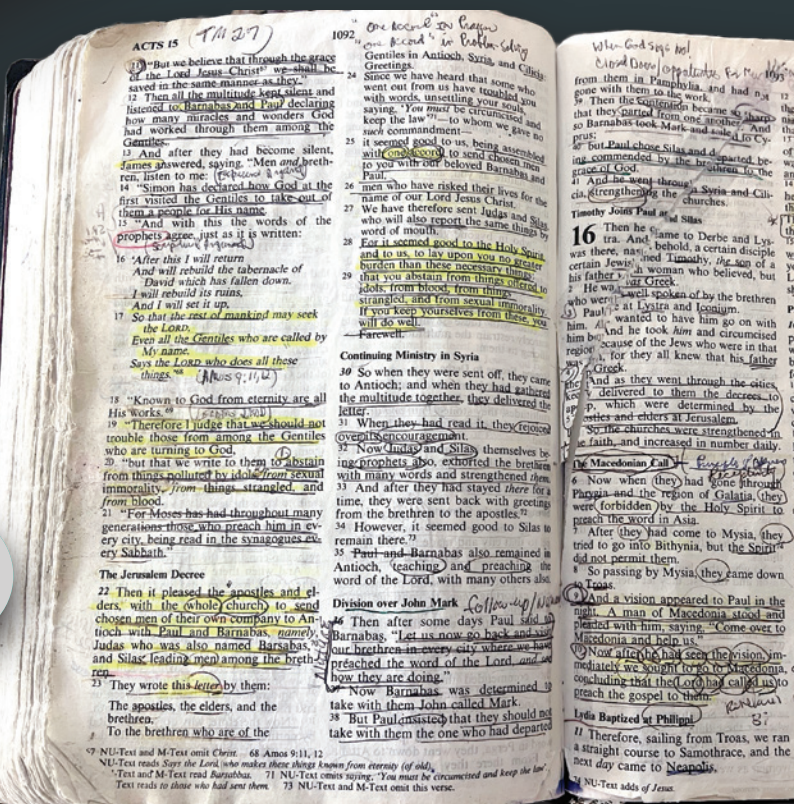 ACTS 15
1092
"one accord" in Prayer
"one accord" in Problem-Solving
11 "But we believe that through the grace
of the Lord Jesus Christ67 we shall be
saved in the same manner as they."
12 Then all the multitude kept silent and
listened to Barnabas and Paul declaring
how many miracles and wonders God
had worked through them among the
Gentiles.
13 And after they had become silent,
James answered, saying, "Men and breth-
ren, listen to me:
14 "Simon has declared how God at the
first visited the Gentiles to take out of
them a people for His name.
15 "And with this the words of the
prophets agree, just as it is written:
16 'After this I will return
And will rebuild the tabernacle of
David which has fallen down.
I will rebuild its ruins,
And I will set it up,
17 So that the rest of mankind may seek
the LORD,
Even all the Gentiles who are called by
My name,
Says the LORD who does all these
things.'68 (Amos 9:11,12)
18 "Known to God from eternity are all
His works.69
19 "Therefore I judge that we should not
trouble those from among the Gentiles
who are turning to God,
20 "but that we write to them to abstain
from things polluted by idols, from sexual
immorality, from things strangled, and
from blood.
21 "For Moses has had throughout many
generations those who preach him in ev-
ery city, being read in the synagogues ev-
ery Sabbath."
The Jerusalem Decree
22 Then it pleased the apostles and el-
ders, with the whole church, to send
chosen men of their own company to An-
tioch with Paul and Barnabas, namely,
Judas who was also named Barsabas,
and Silas, leading men among the breth-
ren.
23 They wrote this letter by them:
The apostles, the elders, and the
brethren,
To the brethren who are of the
Gentiles in Antioch, Syria, and Cilicia:
Greetings.
24 Since we have heard that some who
went out from us have troubled you
with words, unsettling your souls,
saying, "You must be circumcised and
keep the law"71—to whom we gave no
such commandment—
25 it seemed good to us, being assembled
with one accord, to send chosen men
to you with our beloved Barnabas and
Paul,
26 men who have risked their lives for the
name of our Lord Jesus Christ.
27 We have therefore sent Judas and Silas,
who will also report the same things by
word of mouth.
28 For it seemed good to the Holy Spirit,
and to us, to lay upon you no greater
burden than these necessary things:
29 that you abstain from things offered to
idols, from blood, from things
strangled, and from sexual immorality.
If you keep yourselves from these, you
will do well.
Farewell.
Continuing Ministry in Syria
30 So when they were sent off, they came
to Antioch; and when they had gathered
the multitude together, they delivered the
letter.
31 When they had read it, they rejoiced
over its encouragement.
32 Now Judas and Silas, themselves be-
ing prophets also, exhorted the brethren
with many words and strengthened them.
33 And after they had stayed there for a
time, they were sent back with greetings
from the brethren to the apostles.72
34 However, it seemed good to Silas to
remain there.73
35 Paul and Barnabas also remained in
Antioch, teaching and preaching the
word of the Lord, with many others also.
Division over John Mark follow-up
36 Then after some days Paul said to
Barnabas, "Let us now go back and visit
our brethren in every city where we have
preached the word of the Lord, and see
how they are doing."
37 Now Barnabas was determined to
take with them John called Mark.
38 But Paul insisted that they should not
take with them the one who had departed
67 NU-Text and M-Text omit Christ. 68 Amos 9:11, 12
NU-Text reads Says the Lord, who makes these things known from eternity (of old).
-Text and M-Text read Barsabbas. 71 NU-Text omits saying, "You must be circumcised and keep the law".
Text reads to those who had sent them. 73 NU-Text and M-Text omit this verse.
When God Says No!
1093
from them in Pamphylia, and had n
gone with them to the work.
39 Then the contention became so sharp
that they parted from one another. And
so Barnabas took Mark and sailed to Cy-
prus;
40 but Paul chose Silas and d parted, be-
ing commended by the brethren to the
grace of God.
41 And he went through Syria and Cili-
cia, strengthening the churches.
Timothy Joins Paul and Silas
16 Then he came to Derbe and Lys-
tra. And behold, a certain disciple
was there, na ned Timothy, the son of a
certain Jewish woman who believed, but
his father was Greek.
2 He wa well spoken of by the brethren
who were at Lystra and Iconium.
3 Paul wanted to have him go on with
him. And he took him and circumcised
him because of the Jews who were in that
region, for they all knew that his father
was Greek.
4 And as they went through the cities,
they delivered to them the decrees to
keep, which were determined by the
apostles and elders at Jerusalem.
5 So the churches were strengthened in
the faith, and increased in number daily.
The Macedonian Call
6 Now when they had gone through
Phrygia and the region of Galatia, they
were forbidden by the Holy Spirit to
preach the word in Asia.
7 After they had come to Mysia, they
tried to go into Bithynia, but the Spirit74
did not permit them.
8 So passing by Mysia, they came down
to Troas.
9 And a vision appeared to Paul in the
night. A man of Macedonia stood and
pleaded with him, saying, "Come over to
Macedonia and help us."
10 Now after he had seen the vision, im-
mediately we sought to go to Macedonia,
concluding that the Lord had called us to
preach the gospel to them.
Lydia Baptized at Philippi
11 Therefore, sailing from Troas, we ran
a straight course to Samothrace, and the
next day came to Neapolis,
74 NU-Text adds of Jesus.